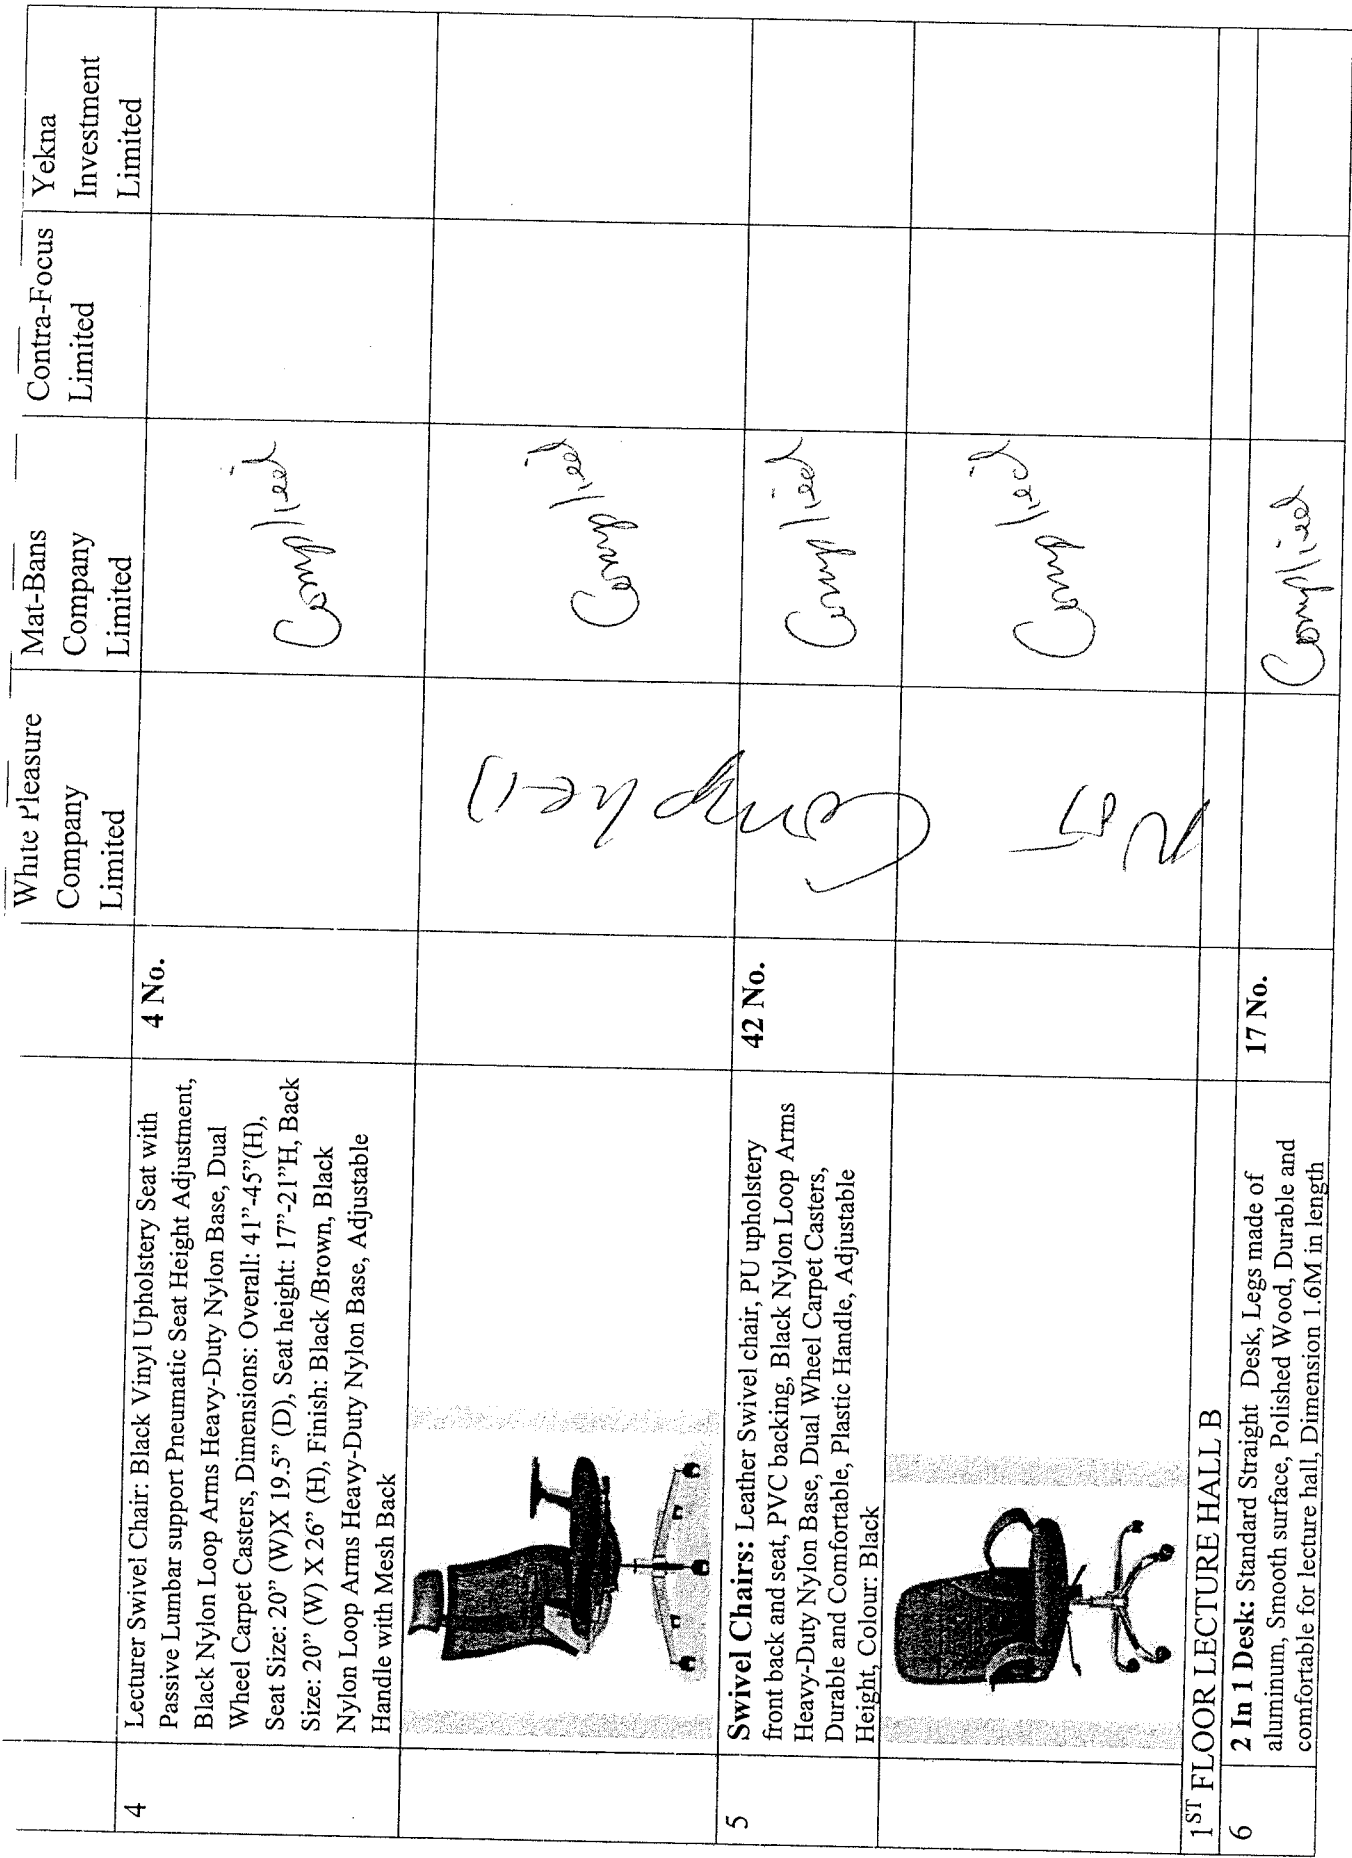 White Pleasure
Company
Limited
Mat-Bans
Company
Limited
Contra-Focus
Limited
Yekna
Investment
Limited
4
Lecturer Swivel Chair: Black Vinyl Upholstery Seat with
Passive Lumbar support Pneumatic Seat Height Adjustment,
Black Nylon Loop Arms Heavy-Duty Nylon Base, Dual
Wheel Carpet Casters, Dimensions: Overall: 41”-45”(H),
Seat Size: 20” (W)X 19.5” (D), Seat height: 17”-21”H, Back
Size: 20” (W) X 26” (H), Finish: Black /Brown, Black
Nylon Loop Arms Heavy-Duty Nylon Base, Adjustable
Handle with Mesh Back
4 No.
Complied
Complied
5
Swivel Chairs: Leather Swivel chair, PU upholstery
front back and seat, PVC backing, Black Nylon Loop Arms
Heavy-Duty Nylon Base, Dual Wheel Carpet Casters,
Durable and Comfortable, Plastic Handle, Adjustable
Height, Colour: Black
42 No.
Not
Complied
Complied
Complied
1ST FLOOR LECTURE HALL B
6
2 In 1 Desk: Standard Straight Desk, Legs made of
aluminum, Smooth surface, Polished Wood, Durable and
comfortable for lecture hall, Dimension 1.6M in length
17 No.
Complied